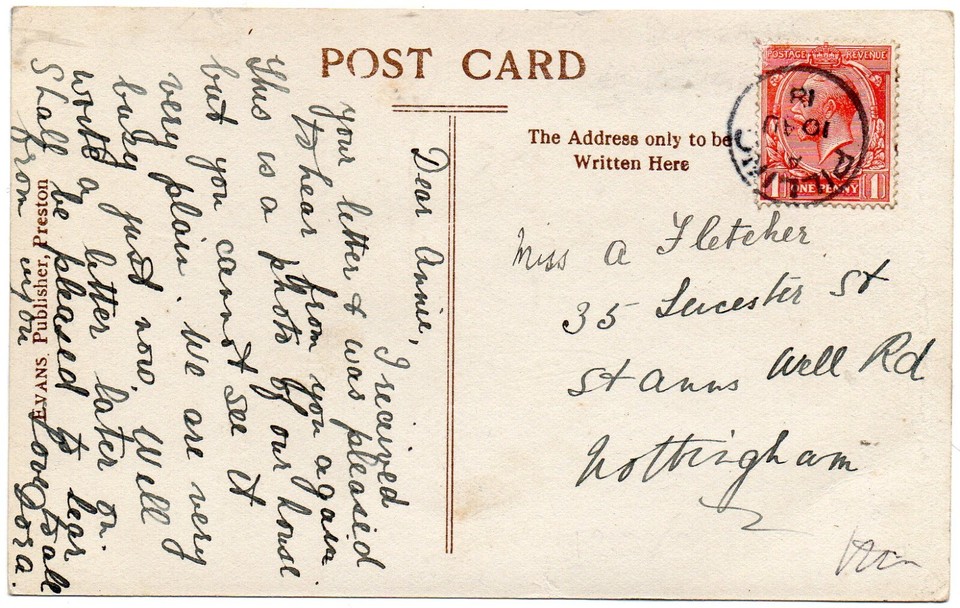 POST CARD
The Address only to be
Written Here
POSTAGE REVENUE
1 ONE PENNY 1
PILLING
10 AU
18
Miss A Fletcher
35 Leicester St
St Anns Well Rd
Nottingham
Dear Annie,
I received
your letter & was pleased
to hear from you again
This is a photo of our house
but you cannot see it
very plain. We are very
busy just now. Will
write a letter later on.
Shall be pleased to hear
from you
Love Dora.
EVANS, Publisher, Preston